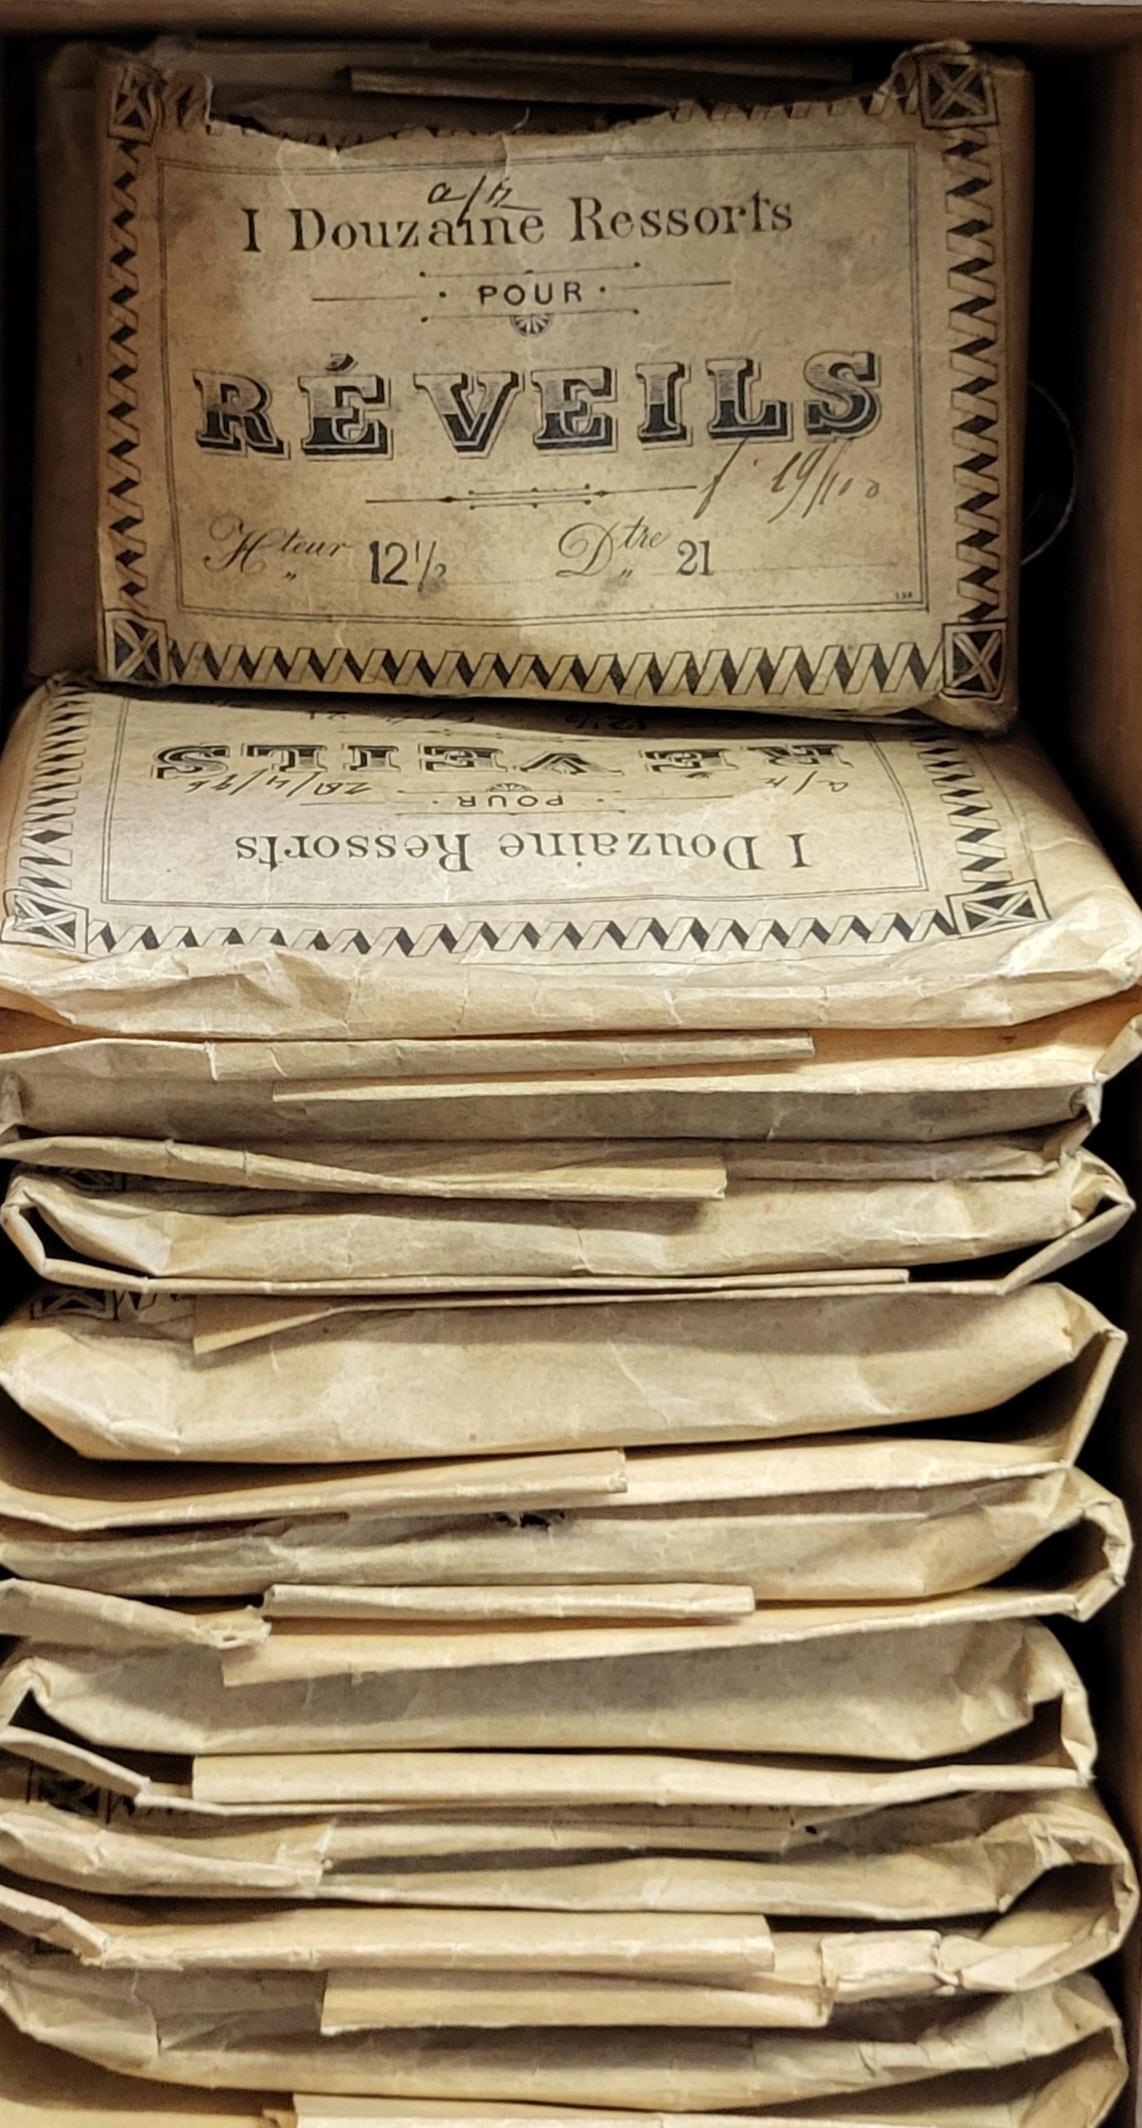 a/r
I Douzaine Ressorts
POUR
RÉVEILS
f. 19/100
Hteur 12½ Dtre 21
I Douzaine Ressorts
POUR
RÉVEILS